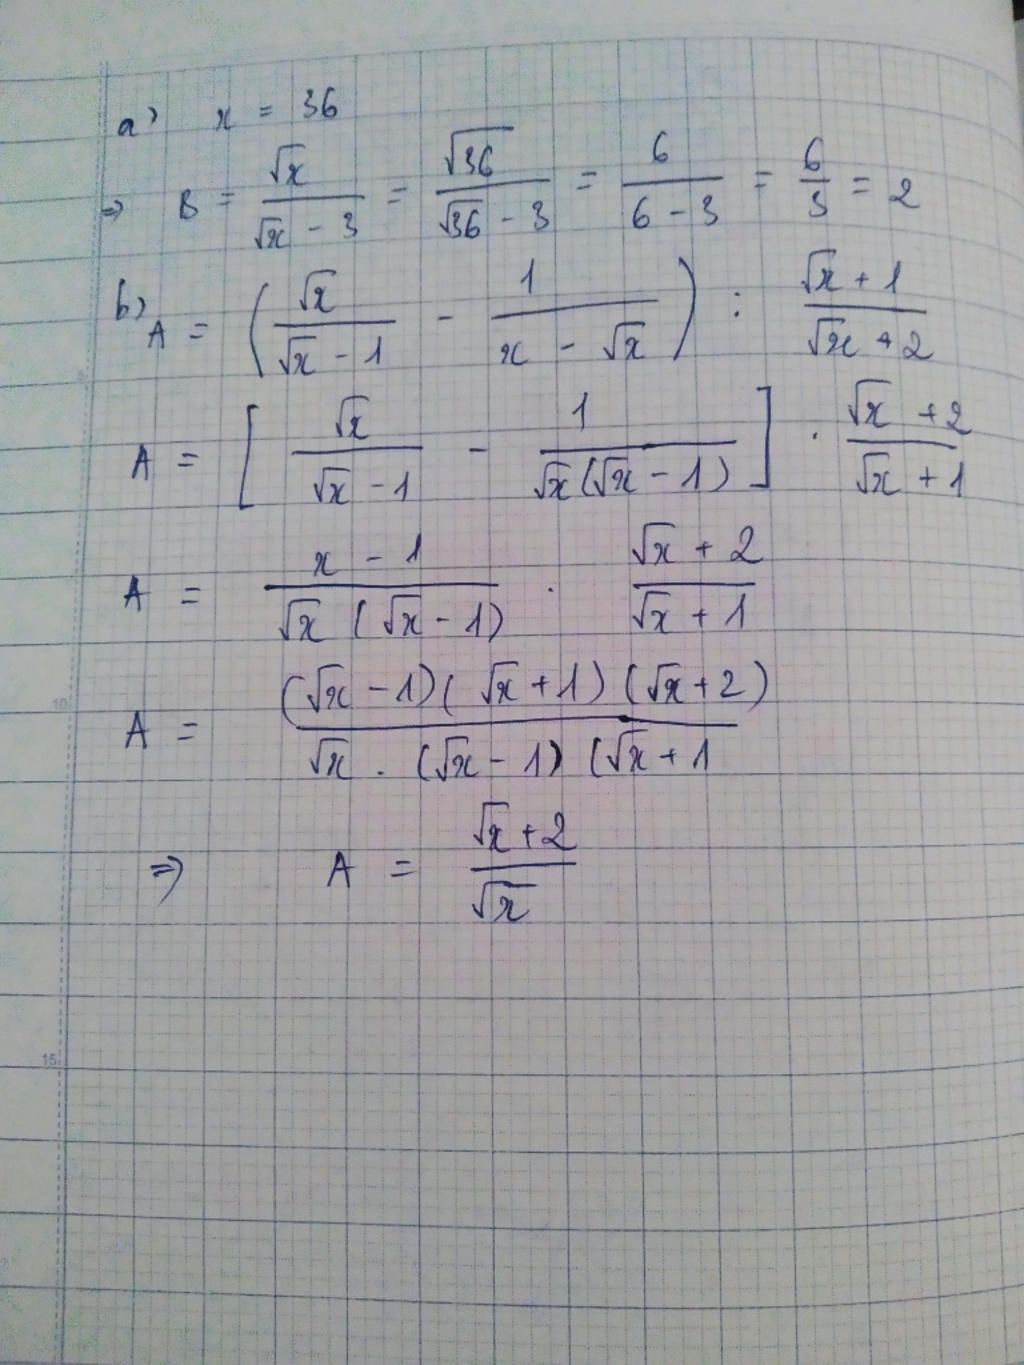 a) x = 36
⇒ B = √x / (√x - 3) = √36 / (√36 - 3) = 6 / (6 - 3) = 6/3 = 2
b) A = (√x / (√x - 1) - 1 / (x - √x)) : (√x + 1) / (√x + 2)
A = [√x / (√x - 1) - 1 / (√x(√x - 1))] . (√x + 2) / (√x + 1)
A = (x - 1) / (√x (√x - 1)) . (√x + 2) / (√x + 1)
A = (√x - 1)(√x + 1)(√x + 2) / √x . (√x - 1)(√x + 1
⇒ A = (√x + 2) / √x
10
15